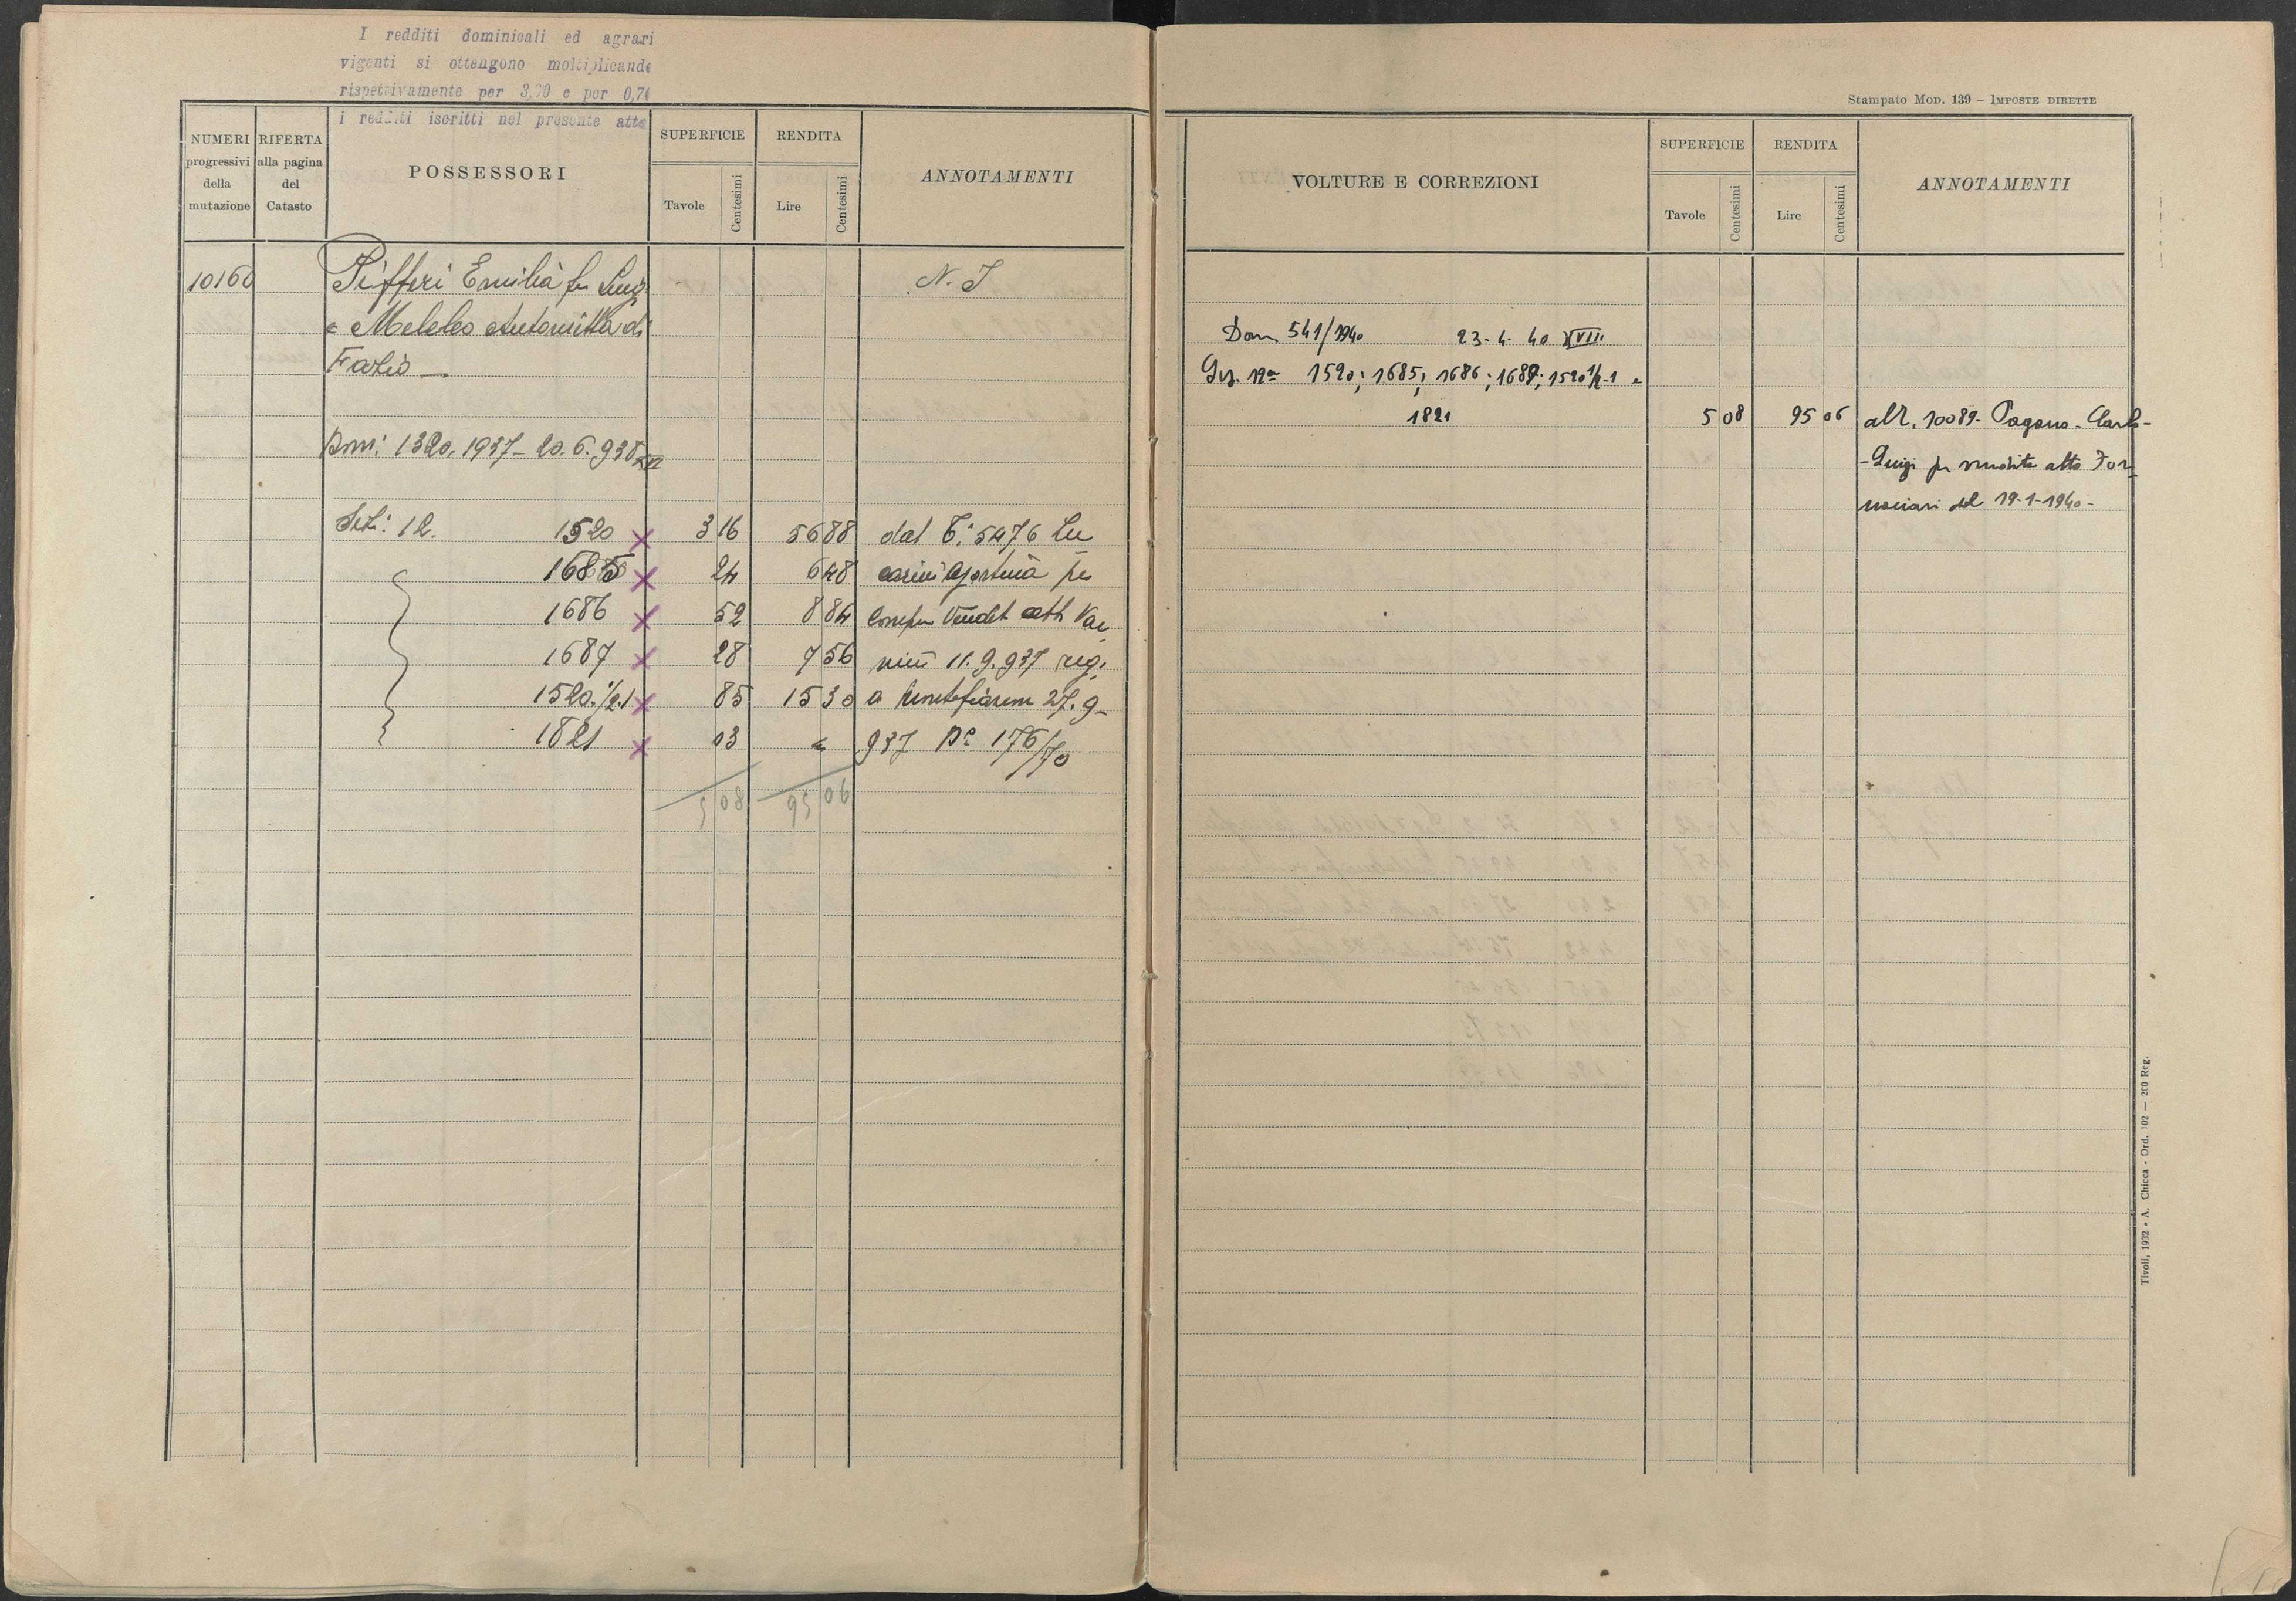 I redditi dominicali ed agrari
vigenti si ottengono moltiplicando
rispettivamente per 3,20 e per 0,70
i redditi iscritti nel presente atto
NUMERI progressivi della mutazione
RIFERTA alla pagina del Catasto
POSSESSORI
SUPERFICIE
Tavole
Centesimi
RENDITA
Lire
Centesimi
ANNOTAMENTI
10160 Pifferi Emilia fu Luigi N. I
e Meleleo Antonietta di
Fazio
Dom: 1320.1937 - 20.6.938 XVI
Sez: 12. 1520 × 3 16 56 88 dal C: 5476 Lu
1685 × 24 6 48 carini per
1686 × 52 8 84 Vendit atto Vac
1687 × 28 7 56 11.9.937 reg.
1520.½.1 × 85 15 30 a 27.9-
1821 × 03 " 937 N° 176/70
5 08 95 06
Stampato MOD. 139 – IMPOSTE DIRETTE
VOLTURE E CORREZIONI
SUPERFICIE
Tavole
Centesimi
RENDITA
Lire
Centesimi
ANNOTAMENTI
Dom 541/1940 23-4-40 XVIII.
Sez. 12a 1520; 1685; 1686; 1687; 1520½-1 e
1821 5 08 95 06 all. 10089- Pagano-Carlo-
-Luigi per vendita atto For
naciari del 19-1-1940-
Tivoli, 1932 - A. Chicca - Ord. 102 — 200 Reg.